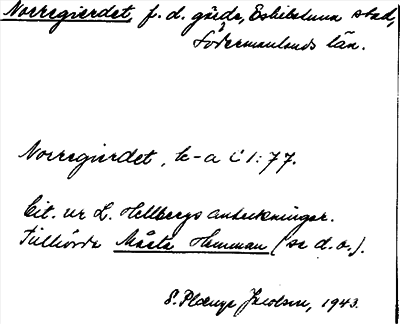 Norregierdet, f. d. gärde, Eskilstuna stad,
Södermanlands län.
Norregierdet, k-a i 1:77.
Cit. ur L. Hellbergs anteckningar.
Tillhörde Måsta Hemman (se d. o.).
S. Plænge Jacobson, 1943.